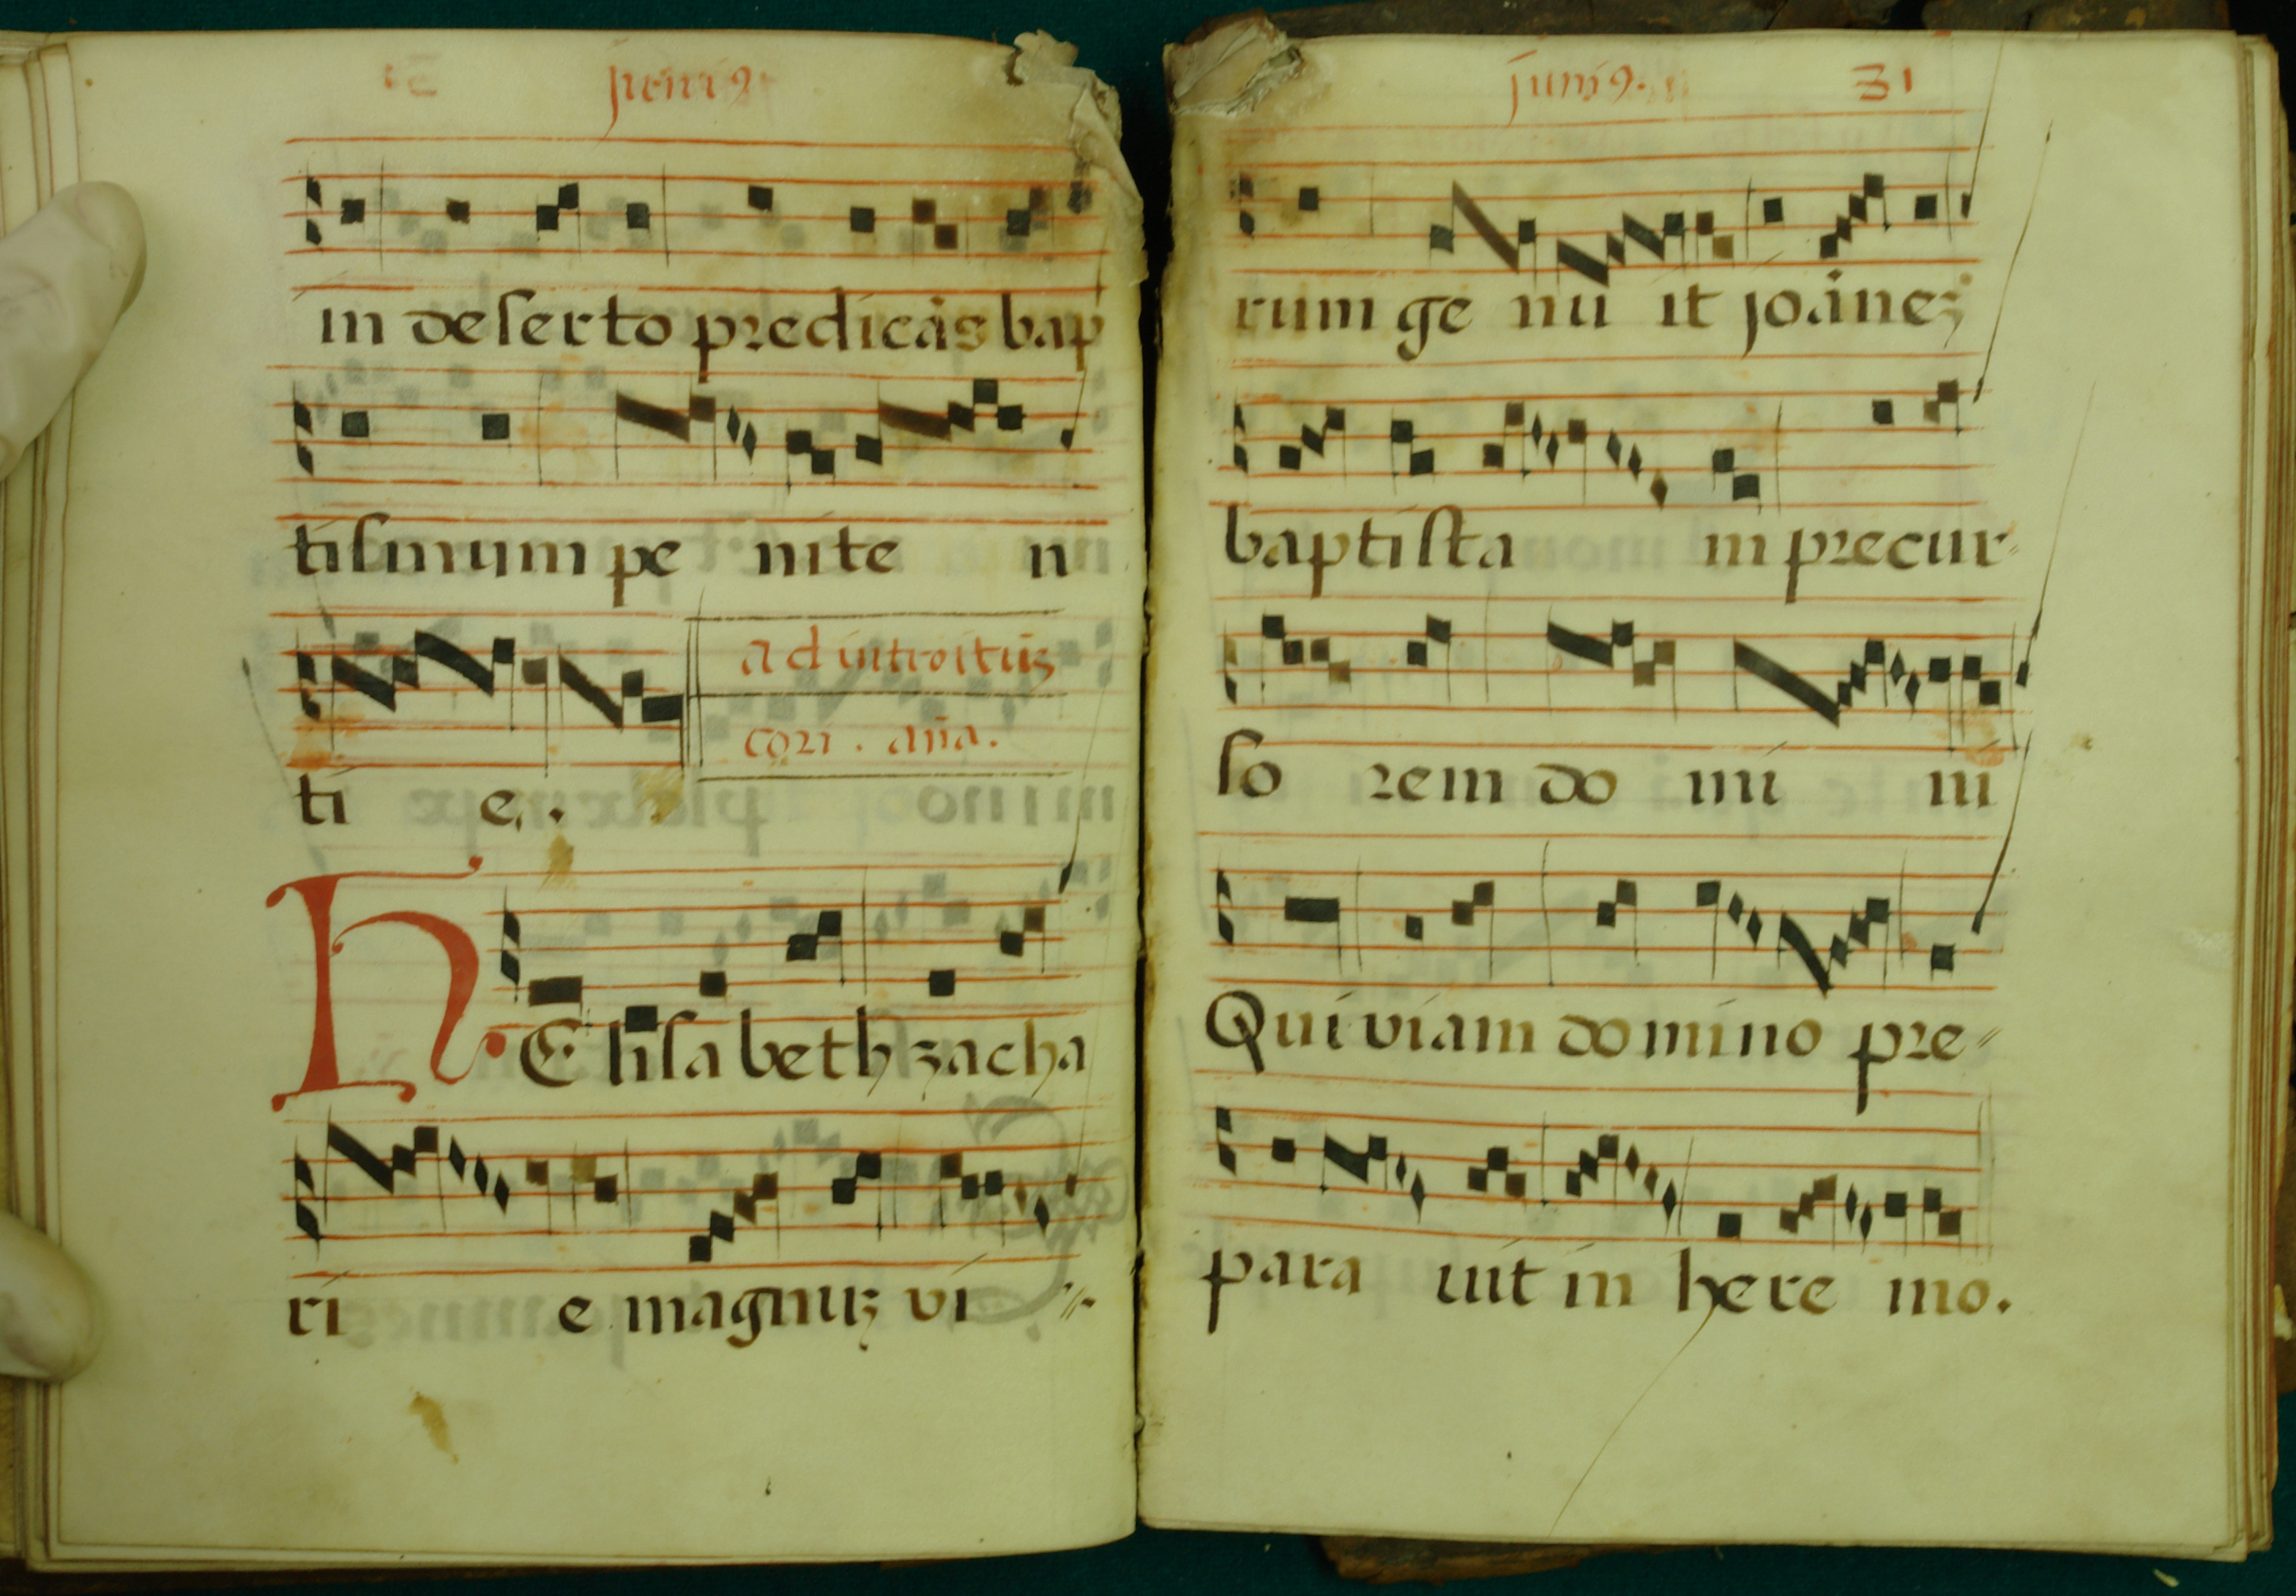 juni9.
in deserto predicãs bap
tismum pe nite n
ti e.
ad introitũꝫ
cori. aña.
h Elisabeth zacha
ri e magnuꝫ vi
juni9. 31
rum ge nu it joãneꝫ
baptista in precur
so rem do mi ni
Qui viam domino pre
para uit in here mo.